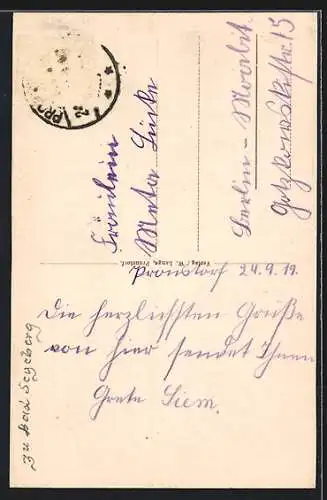 Fräulein
Meta Lüske
Berlin-Moabit
Gotzkowskistr. 15
Verlag v. W. Lange, Pronstorf.
Pronstorf 24.9.19.
Die herzlichsten Grüße
von hier sendet Ihnen
Grete Siem.
zu Bad Segeberg
PRO